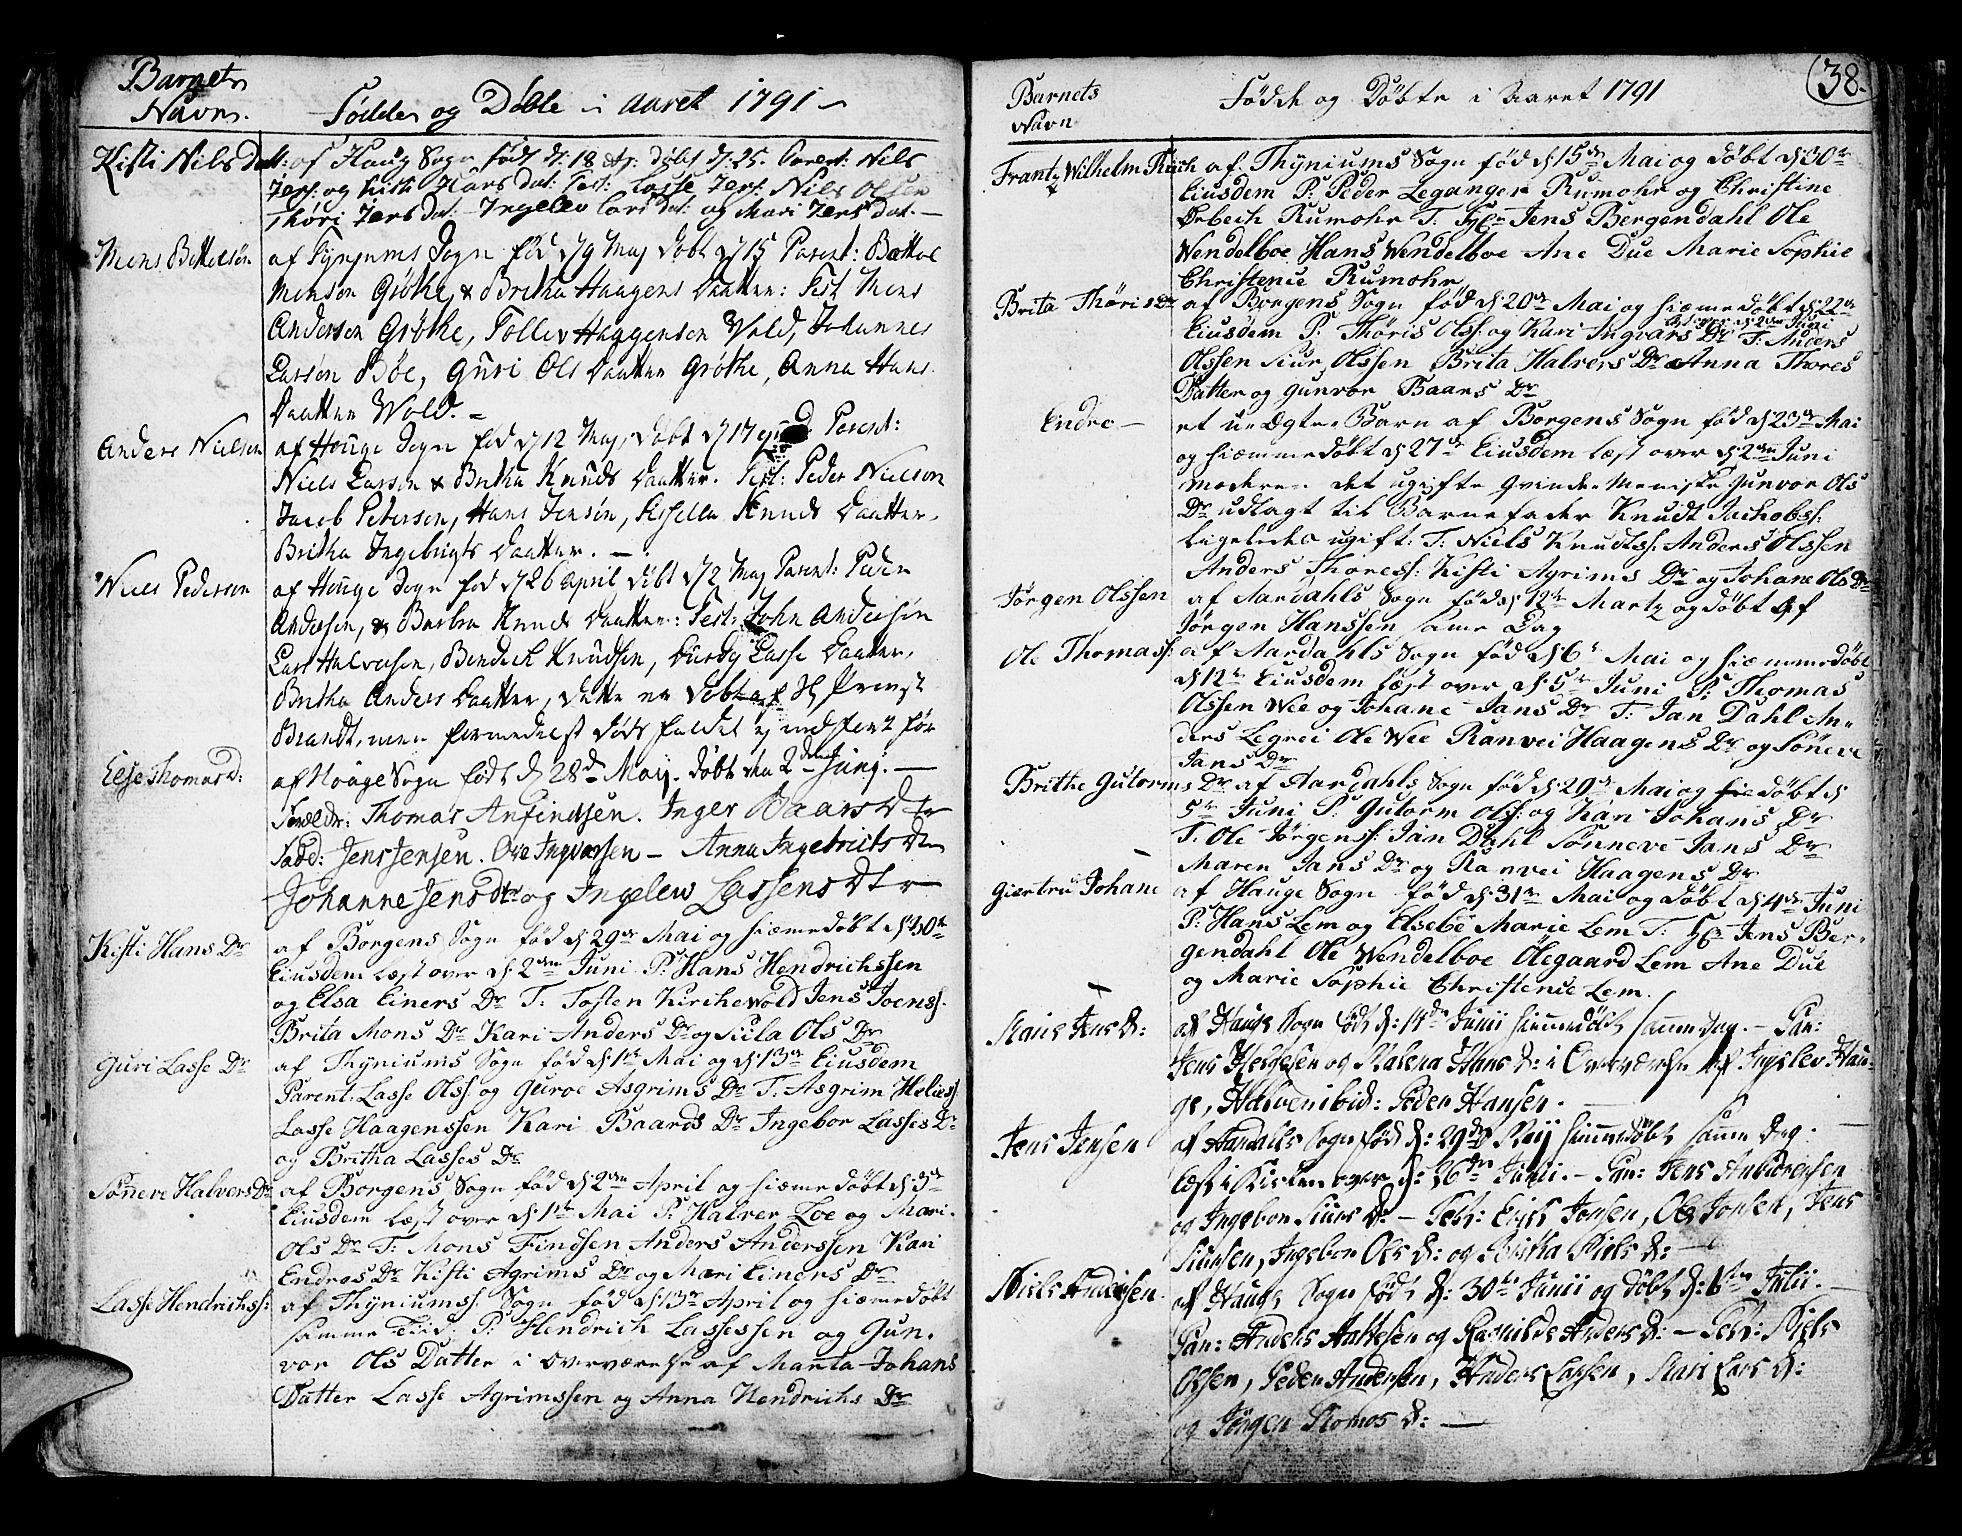 Barnets
Navn.
Födde og Döbte i Aaret 1791
Kisti Nils dat: af Haug Sogn föd d: 18 døbt d: 25. Parent: Nils
Jers: og Kisti Hars dat: Test: Lasse Jers: Nils Olsen
Thöri Jers dat: Ingelev Lars dat: og Mari Jers dat. —
Mons Bottelsön
af Tynjums Sogn föd d 9 Maj döbt d 15 Parent: Bottol
Monsen Gröthe, & Britha Haagens Daatter: Test Mons
Andersen Gröthe, Tollev Haagensen Wold, Johannes
Larsön Böe, Guri Ols Daatter Gröthe, Anna Hans
Daatter Wold. —
Anders Nielsen
af Houge Sogn föd d 12 Maj, döbt d 17 Parent:
Niels Larsen & Britha Knuds Daatter. Test: Peder Nielsen
Jacob Petersen, Hans Jensön, Sissella Knuds Daatter,
Britha Ingebrigts Daatter. —
Niels Pedersen
af Houge Sogn föd d 26 April döbt d 2 Maj Parent: Peder
Andersen, & Barbra Knuds Daatter: Test: John Andersön
Lars Halversen, Bendick Knudsen, Durdy Lasse Daatter,
Britha Anders Daatter, dette er döbt af H Provst
Brandt, men formedelst döds faldet ej indfört för
Else Thomas d:
af Houge Sogn födt d 28de Maij. döbt den 2den Junij. —
Forældr: Thomas Anfindsen. Inger Baars Dtr
Fadd: Jens Jensen. Ove Ingvarsen — Anna Ingebricts Dtr
Johanne Jens dtr og Ingelew Lassens Dtr —
Kisti Hans Dr
af Borgens Sogn föd d 29de Mai og hiemedöbt d 30te
Eiusdem læst over d 2den Juni P: Hans Hendrichssen
og Elsa Einers Dr T: Tosten Kirchewold Jens Joens:
Brita Mons Dr Kari Anders Dr og Siula Ols Dr
Guri Lasse Dr
af Thyniums Sogn föd d 1te Mai og d 13de Eiusdem
Parent: Lasse Olss: og Guroe Asgrims Dr T: Asgrim Heliess:
Lasse Haagenssen Kari Baards Dr Ingebor Lasses Dr
og Britha Lasses Dr
Söneve Halvers Dr
af Borgens Sogn föd d 2den April og hiemedöbt d 3de
Eiusdem læst over d 1te Mai P: Halver Loe og Mari
Ols Dr T: Mons Findsen Anders Anderssen Kari
Endres Dr Kisti Agrims Dr og Mari Einers Dr
Lasse Hendrichss:
af Thyniums: Sogn föd d 13de April og hiemedöbt
samme Tiid P: Hendrich Lassessen og Gun-
vor Ols Datter i Overværelse af Marita Johans
Datter Lasse Agrimssen og Anna Hendrichs Dr
38.
Barnets
Navn
Födde og Döbte i Aaret 1791
Frantz Wilhelm Rusch af Thyniums Sogn föd d 15de Mai og döbt d 30te
Eiusdem P: Peder Leganger Rumohr og Christine
Orbech Rumohr T: Jens Bergendahl Ole
Wendelboe Hans Wendelboe Ane Due Marie Sophie
Christence Rumohr
Brita Thöris Dr
af Borgens Sogn föd d 20de Mai og hiæmedöbt d 22de
læst over d 2den Juni
Eiusdem P: Thöris Olss: og Kari Ingvars Dr T: Anders
Olssen Siur Olssen Brita Halvers Dr Anna Thores
Datter og Gunvor Baars Dr
Endre —
et u-Ægte Barn af Borgens Sogn föd d 23de Mai
og hiæmmedöbt d 27de Eiusdem læst over d 2den Juni
Moderen det ugifte Qvinde Meniske Gunvor Ols
Dr udlagt til Barnefader Knudt Jachobss:
ligeledes ugift: T: Niels Knudtss: Anders Olssen
Anders Thoress: Kisti Agrims Dr og Johane Ols Dr
Jörgen Olssen
af Aardahls Sogn föd d 12te Martz og döbt af
Jörgen Hanssen samme Dag
Ole Thomass:
af Aardahls Sogn föd d 6te Mai og hiæmmedöbt
d 12te Eiusdem læst over d 5te Juni P: Thomas
Olssen Wee og Johane Jans Dr T: Jan Dahl An-
ders Legrei Ole Wee Ranvei Haagens Dr og Söneve
Jans Dr
Brithe Gutorms Dr af Aardahls Sogn föd d 29de Mai og döbt d
5te Juni P: Gutorm Olss: og Kari Johans Dr
T: Ole Jörgenss: Jan Dahl Sönneve Jans Dr
Maren Jans Dr og Ranvei Haagens Dr
Giertru Johane
af Hauge Sogn föd d 31te Mai og döbt d 4de Juni
P: Hans Lem og Elsebe Marie Lem T: Jens Ber-
gendahl Ole Wendelboe Ölegaard Lem Ane Due
og Marie Sophie Christence Lem.
Kari Jens D:
af Haugs Sogn födt d: 14de Junii hiemmedöbt samme dag. — Par:
Jens Helgesen og Malena Hans D: i Overværelse af Ingelev Hau-
ge, Halven ibid: Peder Hansen.
Jens Jensen
af Aardals Sogn född d: 29de Maij hiemmedöbt samme dag. —
læst i Kirken over d: 26de Junii. — Par: Jens Andersen
og Ingebor Siurs D: — Test: Erich Jonsen, Ole Jonsen, Jens
Siursen, Ingebor Ols D: og Britha Niels D: —
Niels Andersen.
af Haugs Sogn födt d: 30te Junii og döbt d: 6ten Julii. —
Par: Anders Aattesen og Ragnilde Anders D: — Test: Niels
Olsen, Peder Andersen, Anders Larsen, Kari Lars D:
og Jörgen Thomos D: —